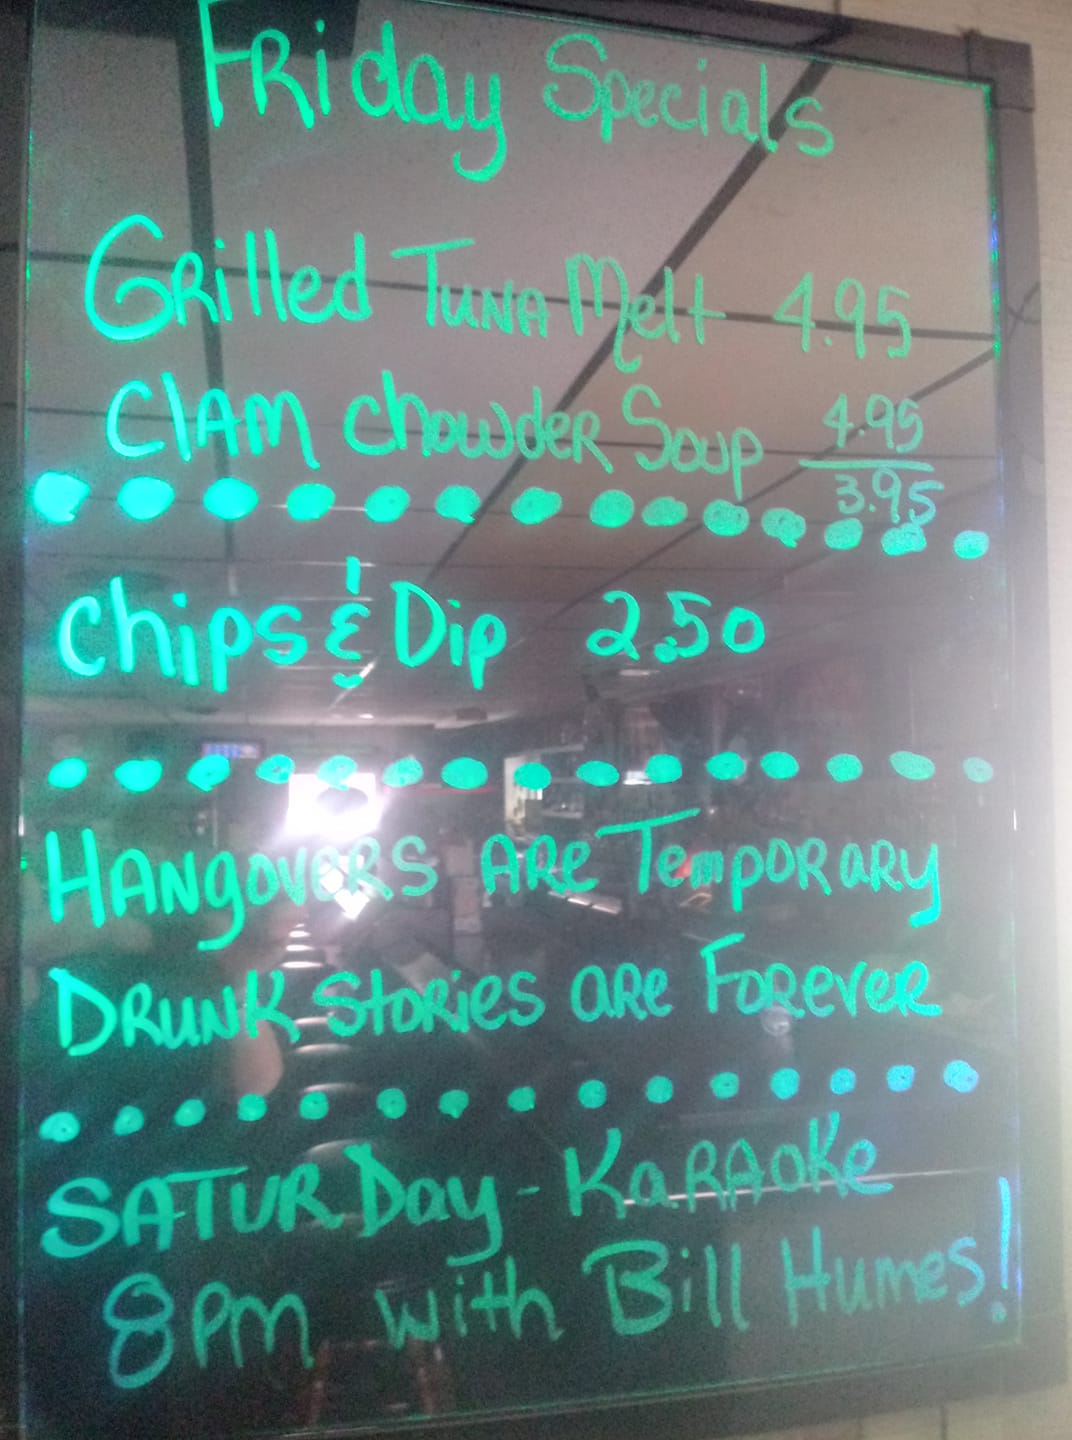 Friday Specials
Grilled Tuna Melt 4.95
Clam Chowder Soup 4.95
3.95
Chips & Dip 2.50
Hangovers are Temporary
Drunk Stories are Forever
Saturday - Karaoke
8pm with Bill Humes!